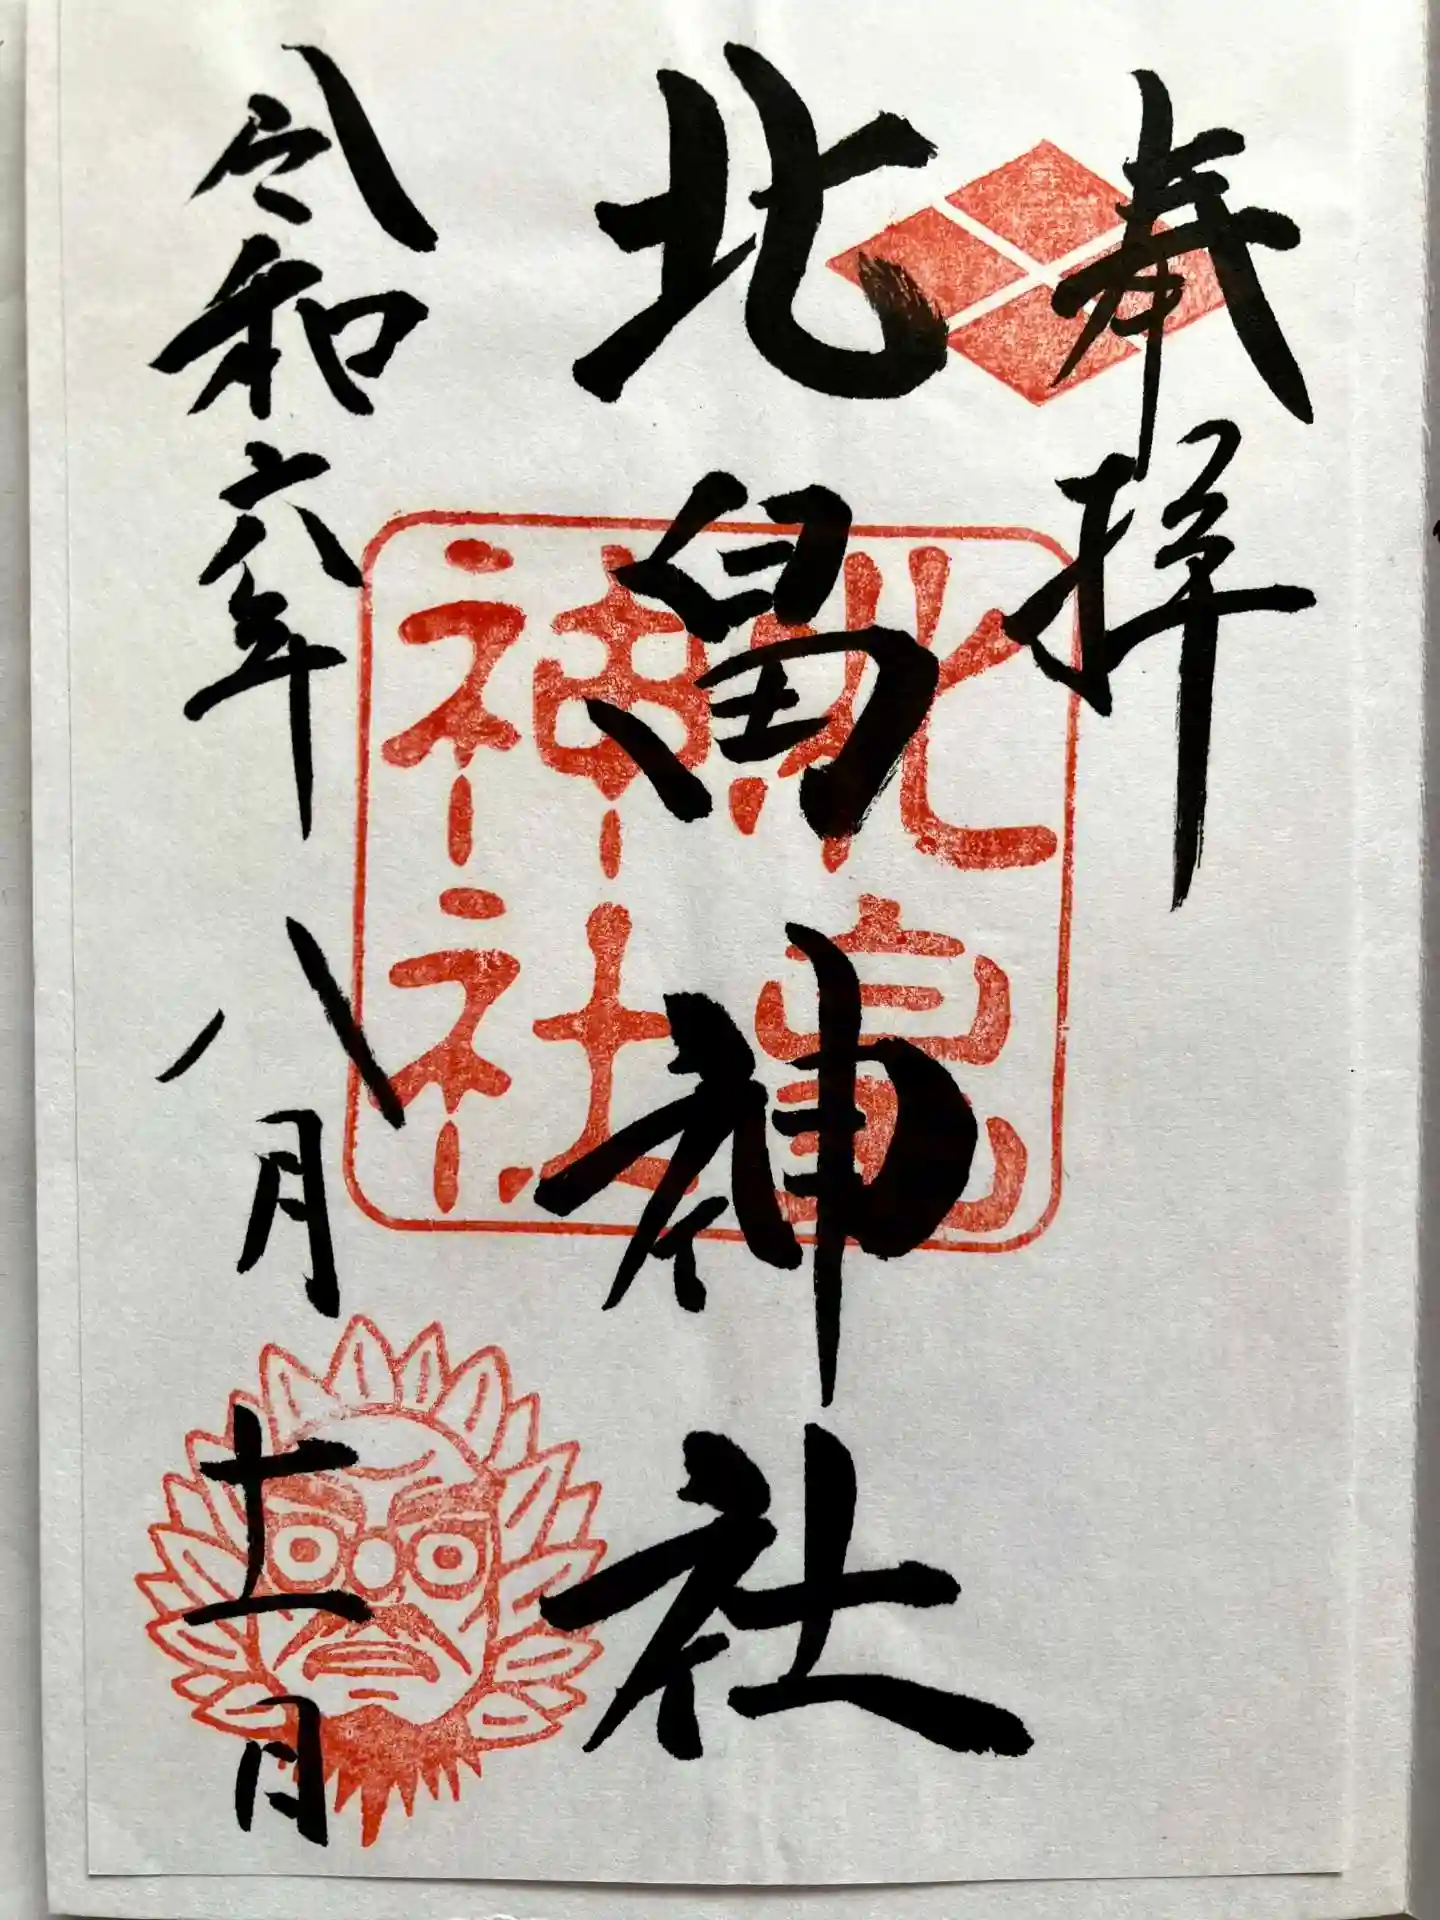 奉拝
北畠神社
令和六年八月十一日
北畠
神社